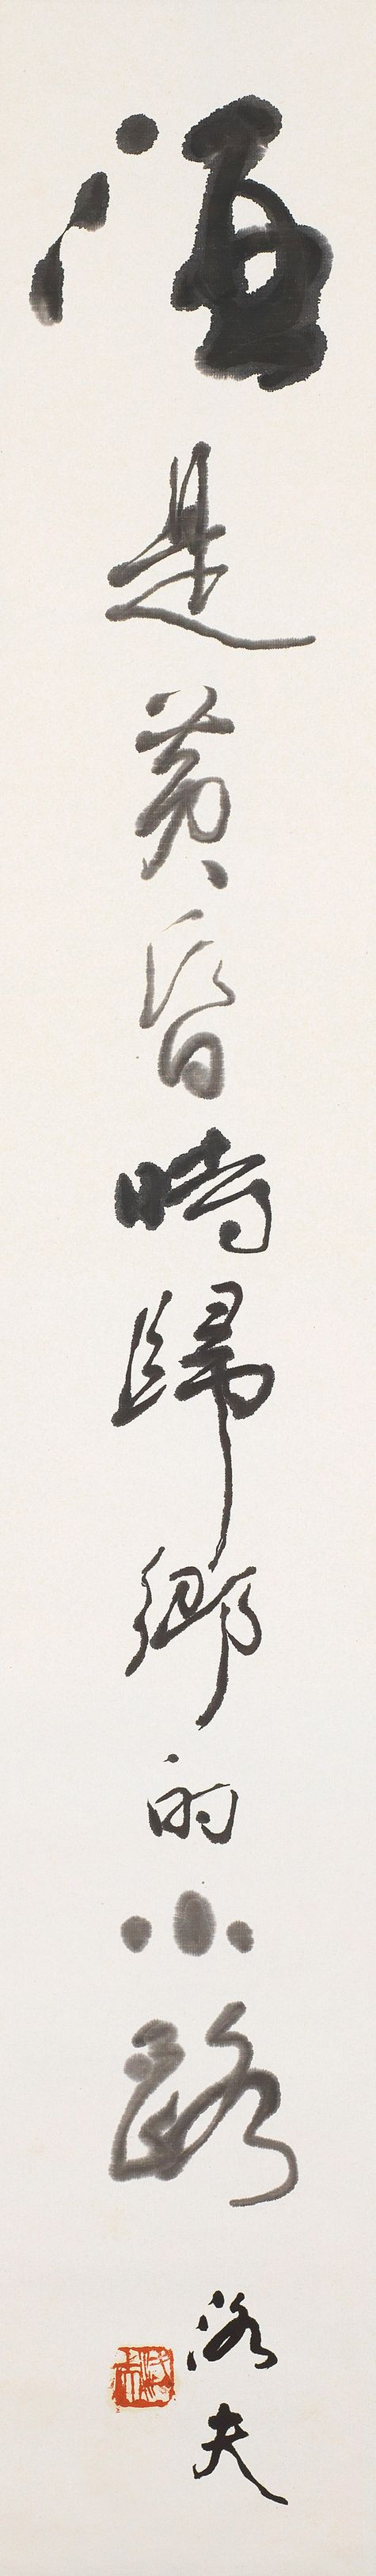 酒是黃昏時歸鄉的小路
洛夫